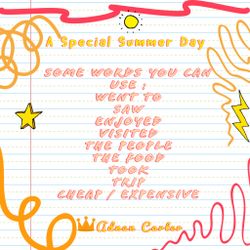 A Special Summer Day
SOME WORDS YOU CAN
USE ;
WENT TO
SAW
ENJOYED
VISITED
THE PEOPLE
THE FOOD
TOOK
TRIP
CHEAP / EXPENSIVE